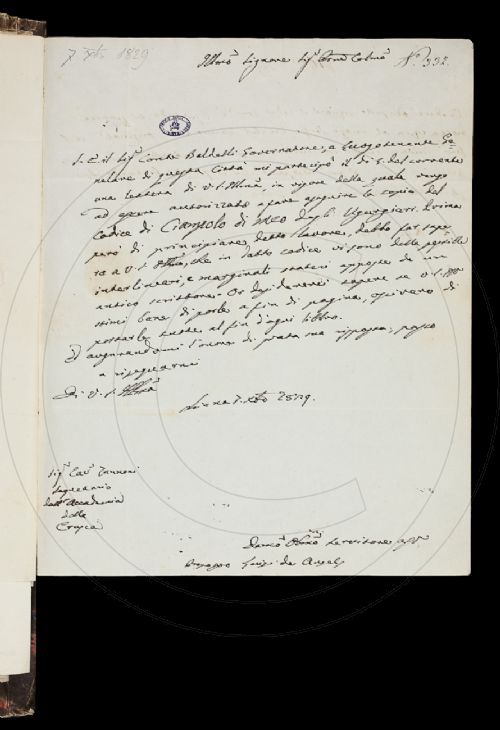 7 Xbre 1829
Illmo Signore Sigr Prone Colmo No. 332.
S. E. il Sigr Conte Baldelli Governatore, e Luogotenente Ge=
nerale di questa Città mi partecipò il dì 5. del corrente
una lettera di V. S. Illma, in vigore della quale vengo
ad essere autorizzato a fare eseguire la copia del
Codice di Ciampolo di Meo degli Ugurgieri. Prima
però di principiare detto lavoro, debbo far sape=
re a V. S. Illma, che in detto codice vi sono delle postille
interlineari, e marginali state apposte da un
antico scrittore. Or desidererei sapere se V. S.
stimi bene di porle a fin di pagina, ovvero di
portarle tutte al fin d'ogni libro.
Ed augurandomi l'onore di grata sua risposta, passo
a rassegnarmi
Di V. S. Illma
Siena 7. Xbre 1829.
Sigr Cavr Zannoni
Segretario
dell' Accademia
della
Crusca
Devmo Obbmo Servitore
Luigi de Angelis